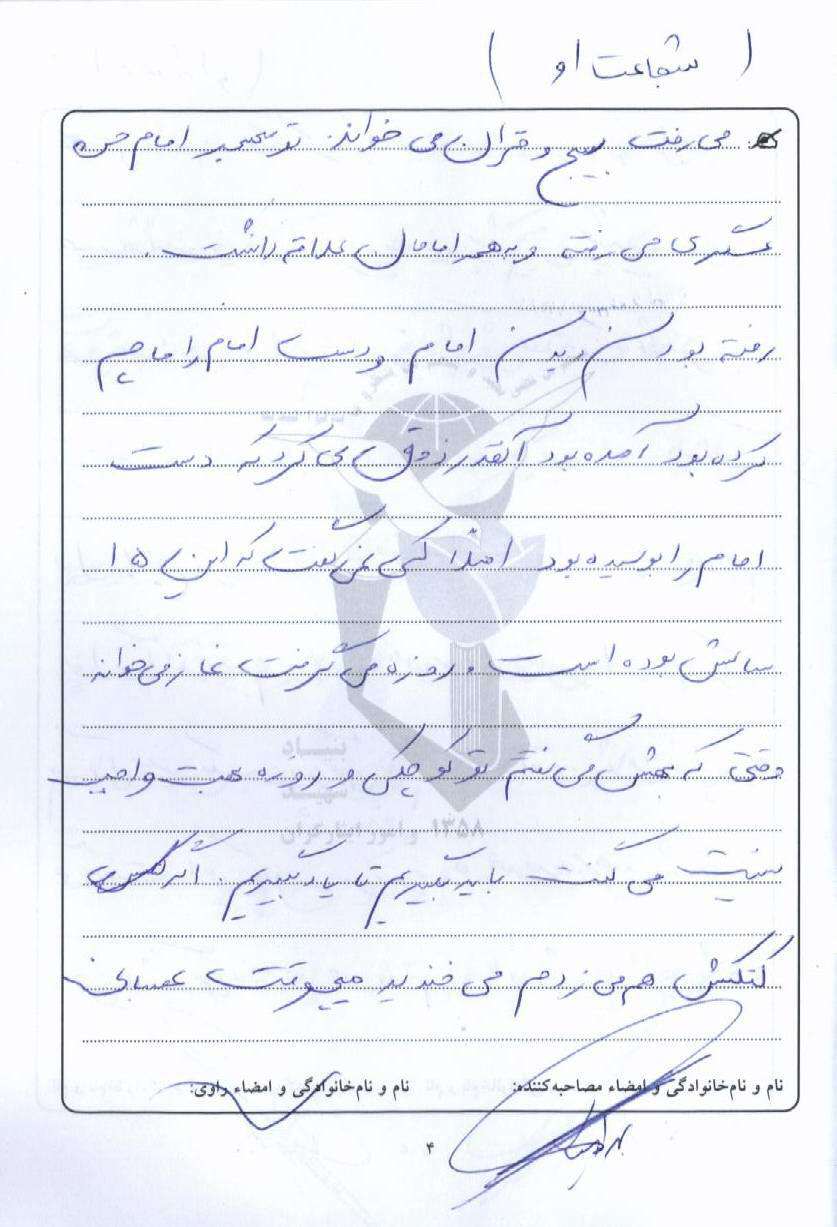 ( شجاعت او )
می رفت بسیج و قران می خواند. تو مسجد امام حسن
عسگری می رفته و به همه امامان علاقه داشت.
رفته بودن دیدن امام و دست امام را ماچ
کرده بود آمده بود آنقدر ذوق می کرد که دست
امام را بوسیده بود اصلا کسی نمی گفت که این ۱۵
سالش بوده است و روزه می گرفت نماز می خواند
وقتی که بهش می گفتم تو کوچکی و روزه بهت واجب
نیست می گفت باید بگیریم تا یاد بگیریم. اگر
کتکش هم می زدم می خندید هیچوقت عصبانی
بنیاد
شهید
و امور ایثارگران ۱۳۵۸
نام و نام‌خانوادگی و امضاء مصاحبه‌کننده: نام و نام‌خانوادگی و امضاء راوی:
۴